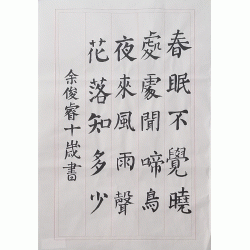 春眠不覺曉
處處聞啼鳥
夜來風雨聲
花落知多少
余俊睿十歲書